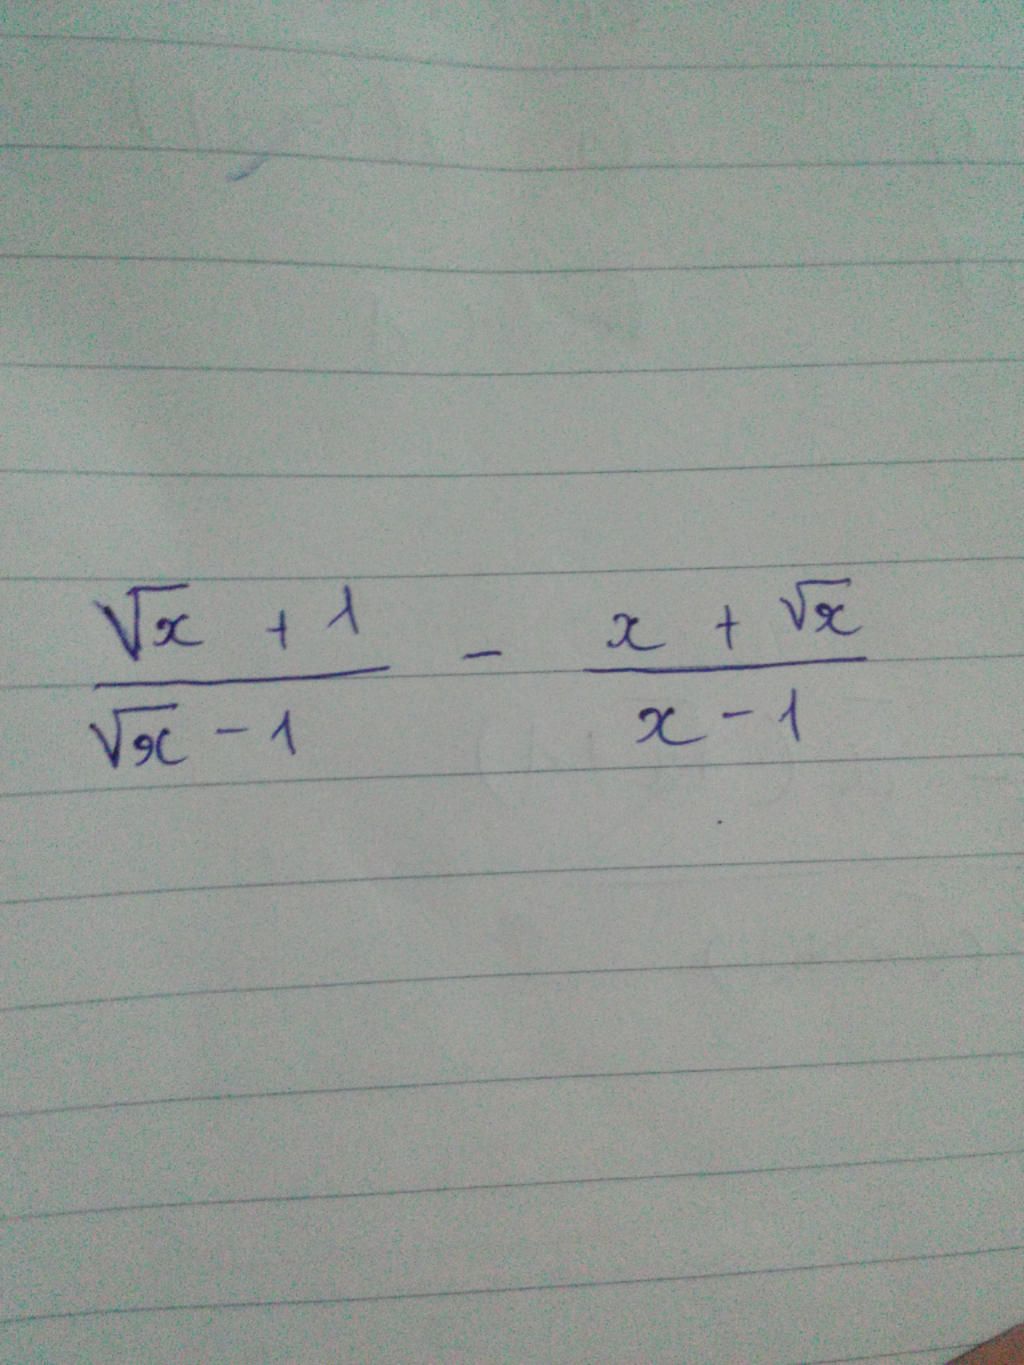 √x + 1 / √x - 1 - x + √x / x - 1